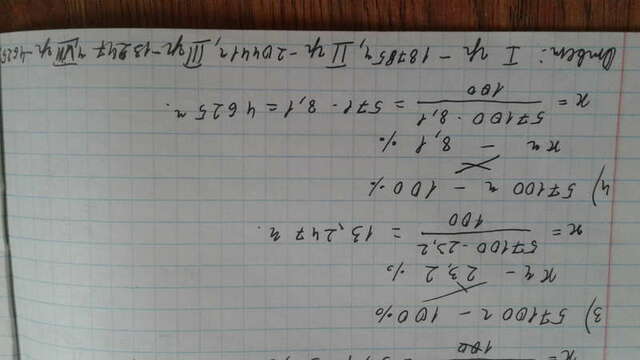 x=
100
3) 57100 ч - 100%
x ч - 23,2 %
x = 57100 · 23,2 / 100 = 13,247 ч.
4) 57100 ч - 100%
x ч - 8,1 %
x = 57100 · 8,1 / 100 = 571 · 8,1 = 4625 ч.
Ответ: I гр - 18785ч, II гр - 20441ч, III гр - 13247 ч, гр - 4625